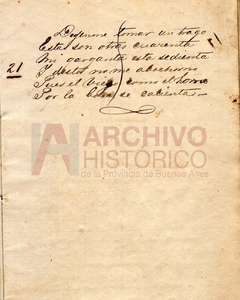 Dejenme tomar un trago
Estas son otras cuarenta
Mi garganta esta sedienta
Y de esto no me abochorno
Pues el viejo como el horno
Por la boca se calienta
21
ARCHIVO
HISTÓRICO
de la Provincia de Buenos Aires